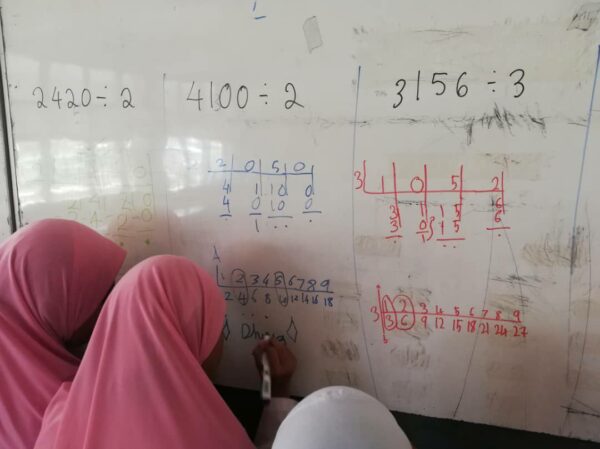 2420 ÷ 2
4100 ÷ 2
2 0 5 0
4 1 10 0
4 0 10 0
1
1 2 3 4 5 6 7 8 9
2 4 6 8 10 12 14 16 18
3156 ÷ 3
3 1 0 5 2
3 1 15 6
3 0 15 6
1
1 2 3 4 5 6 7 8 9
3 3 6 9 12 15 18 21 24 27